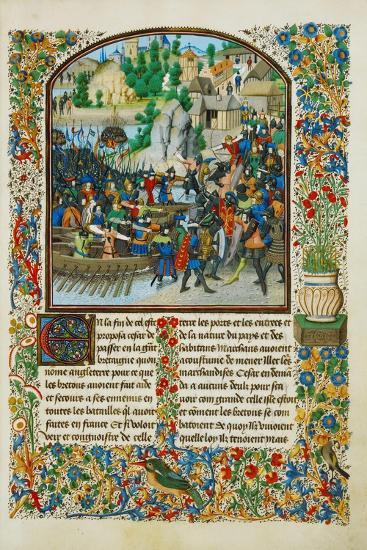 En la fin de cel este
proposa cesar de
passer en la grāt
bretaigne quon
nome angleterre pour ce que
les bretons avoient fait aide
et secours a ses ennemis en
toutes les batailles ql avoit
faites en france Et si voloit
veir et congnoistre de celle
terre les pors et les entrees et
de la nature du pays et des
habitans Marchans avoient
acoustume de mener illec les
marchandises Cesar en demā
da a aucuns deulx pour sav
oir com grande celle isle estoit
et cōment les bretons se com
batoient de quoy ilz vivoient
quelle loy ilz tenoient Mais